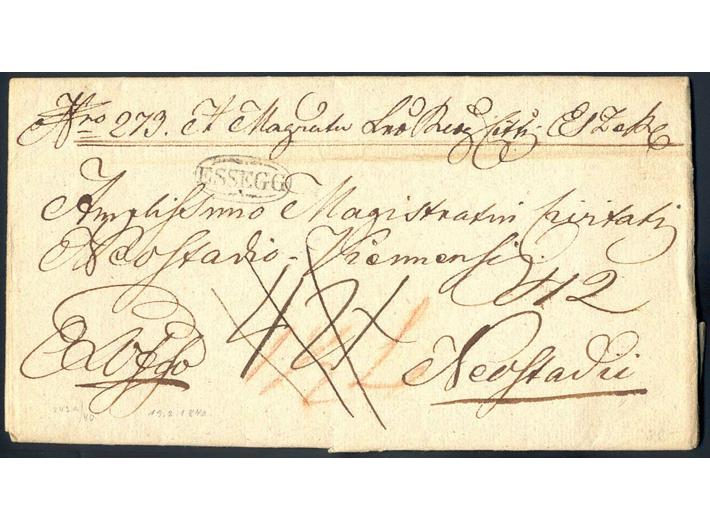 Nro 273. A Magratu Lib Reg Citis Eszek
ESSEGG
Amplissimo Magistratui Civitatis
Neostadio-Viennensis.
42
Ex Offo
Neostadii
19.2.1840